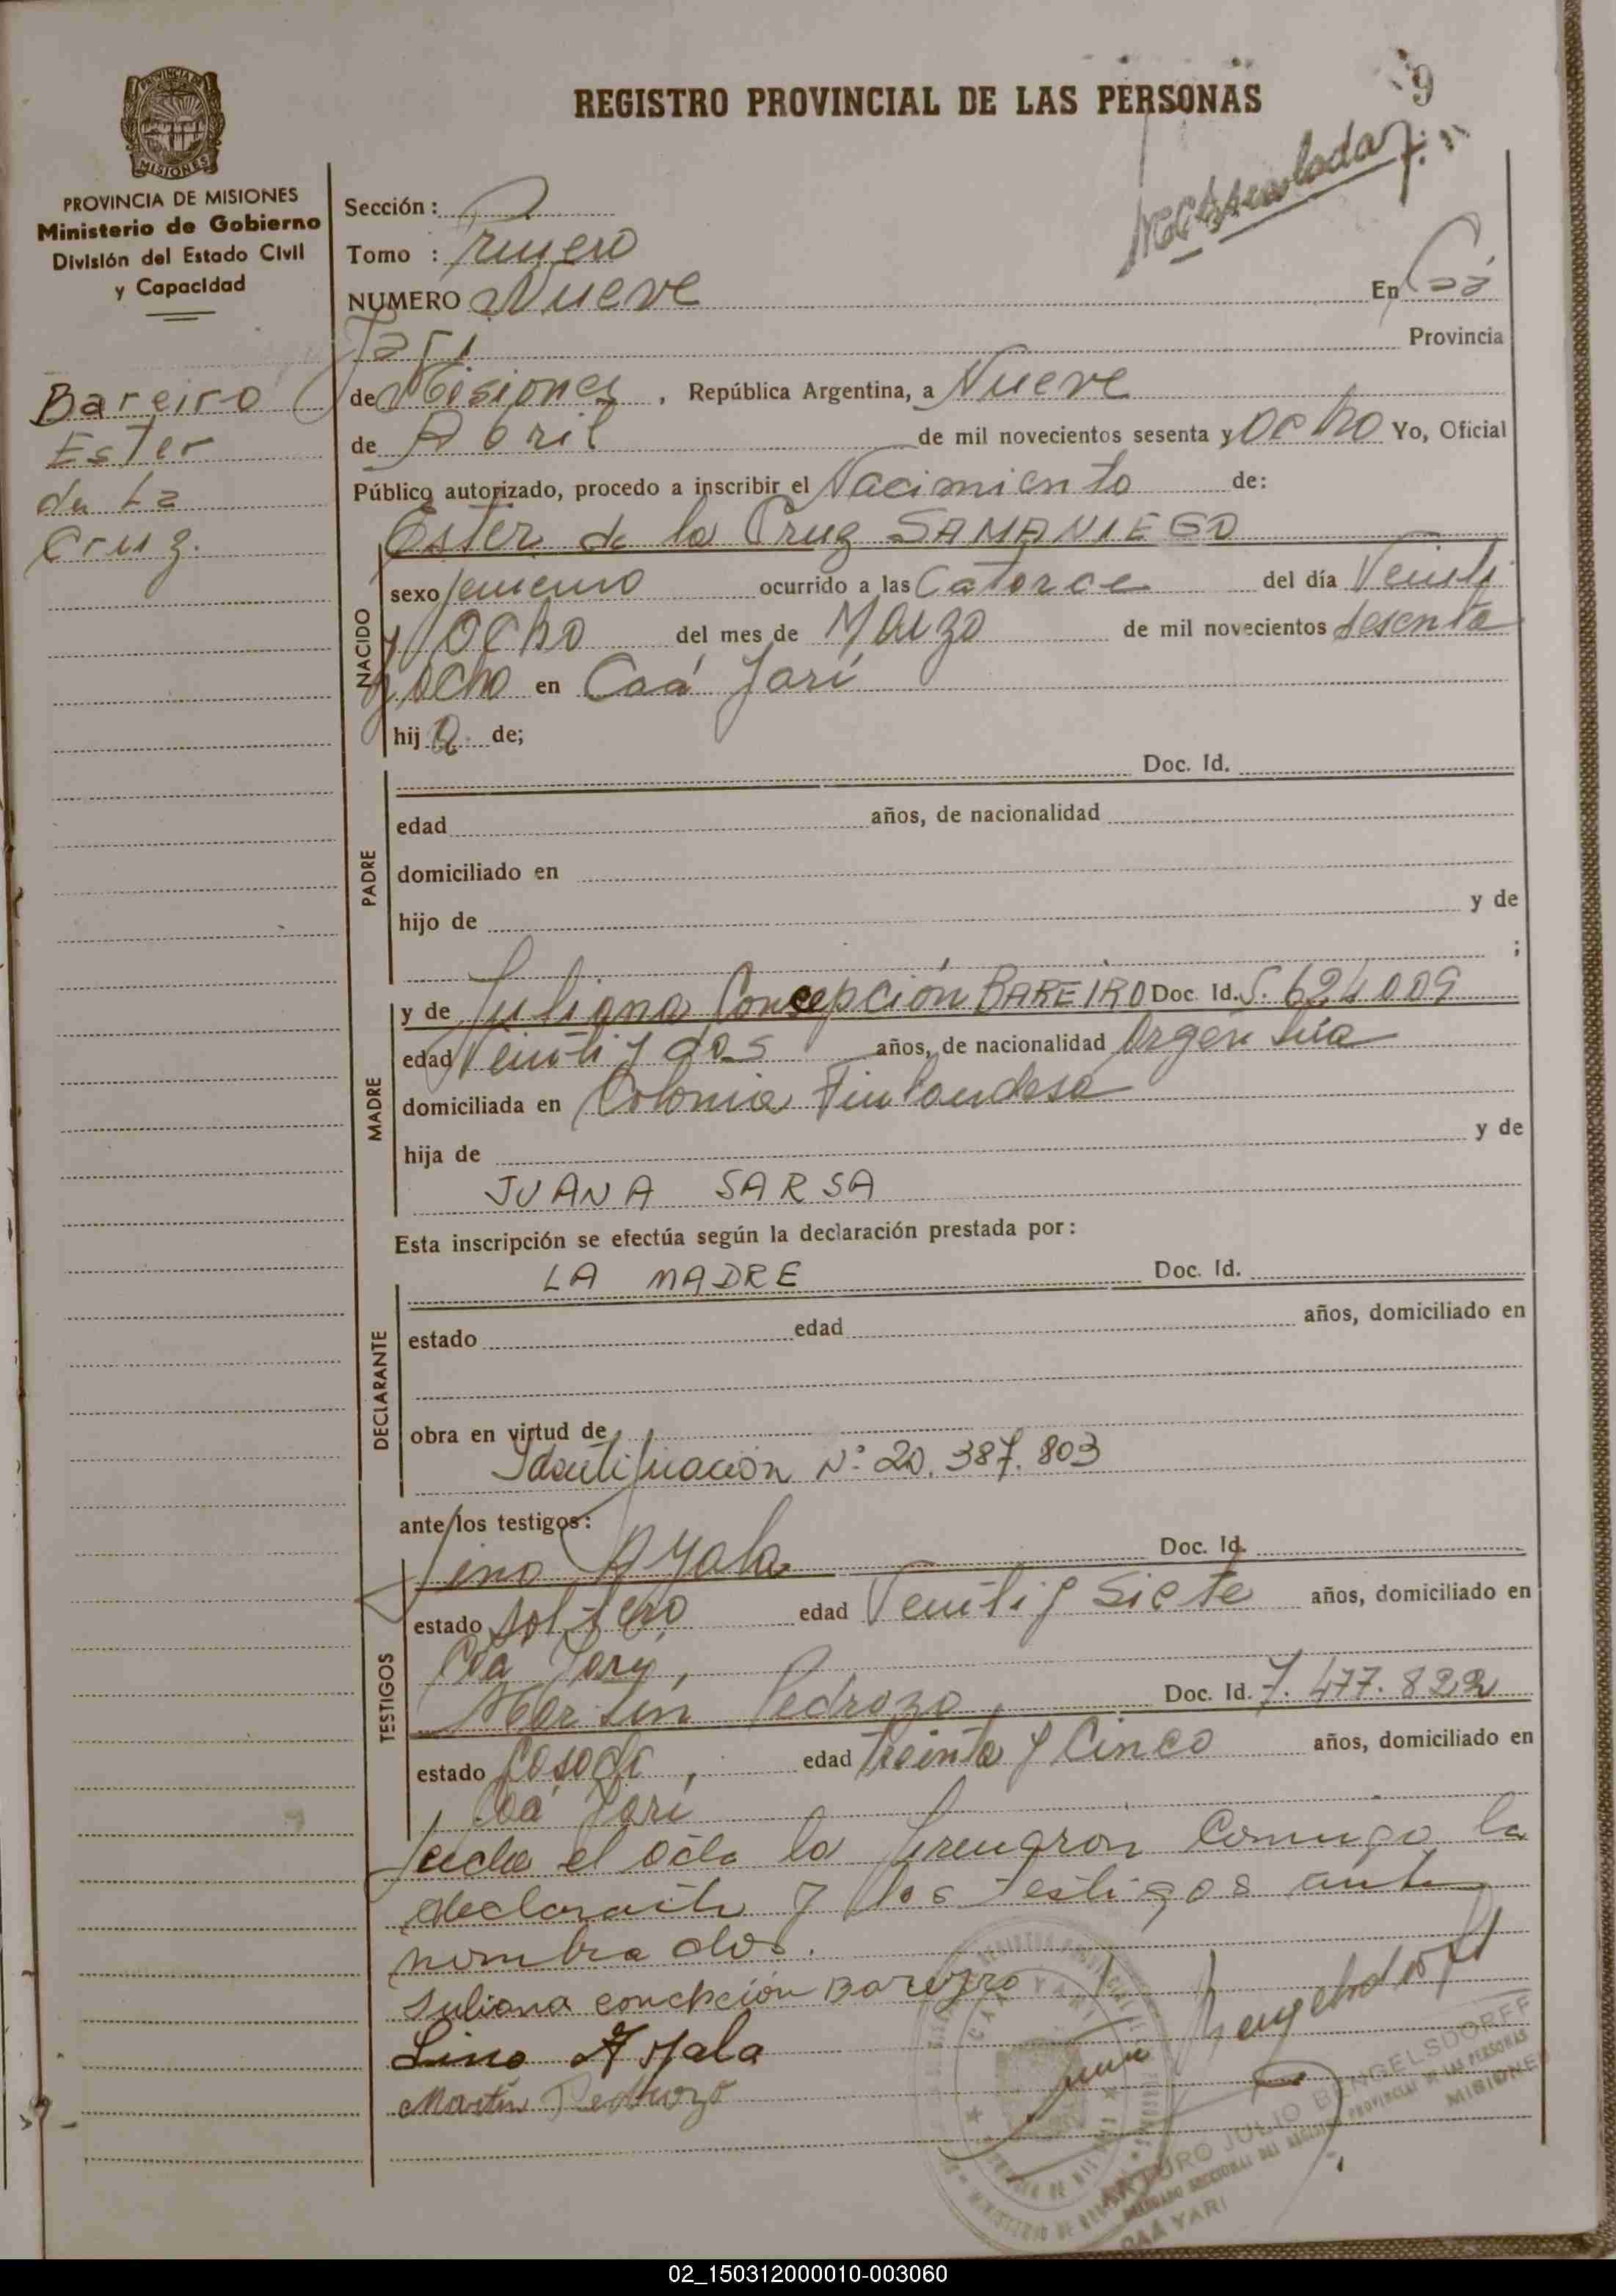 9
REGISTRO PROVINCIAL DE LAS PERSONAS
PROVINCIA DE
MISIONES
PROVINCIA DE MISIONES
Ministerio de Gobierno
División del Estado Civil
y Capacidad
Bareiro
Ester
de la
Cruz.
Sección :
Tomo : Primero
NUMERO Nueve En Caá
Yarí Provincia
de Misiones, República Argentina, a Nueve
de Abril de mil novecientos sesenta y Ocho Yo, Oficial
Público autorizado, procedo a inscribir el Nacimiento de:
Ester de la Cruz SAMANIEGO
NACIDO
sexo femenino ocurrido a las Catorce del día Veinti
y Ocho del mes de Marzo de mil novecientos sesenta
y ocho en Caá Yarí
hij a de;
PADRE
Doc. Id.
edad años, de nacionalidad
domiciliado en
hijo de y de
;
MADRE
y de Juliana Concepción BAREIRO Doc. Id. 5.624.009
edad Veinti y dos años, de nacionalidad Argentina
domiciliada en Colonia Finlandesa
hija de y de
JUANA SARSA
Esta inscripción se efectúa según la declaración prestada por:
DECLARANTE
LA MADRE Doc. Id.
estado edad años, domiciliado en
obra en virtud de
Identificación Nº 20.387.803
ante los testigos:
TESTIGOS
Lino Ayala Doc. Id.
estado soltero edad Veinti y Siete años, domiciliado en
Caá Yary,
Martín Pedrozo, Doc. Id. 7.477.822
estado Casado, edad treinta y Cinco años, domiciliado en
Caá Yarí
Leida el acta la firmaron Conmigo la
declarante y los testigos ante
nombrados.
Juliana concepción Bareyro
Lino Ayala
Martín Pedrozo
CAA YARI
ARTURO JULIO BENGELSDORFF
DELEGADO SECCIONAL DEL REGISTRO PROVINCIAL DE LAS PERSONAS
CAÁ YARI MISIONES
02_150312000010-003060